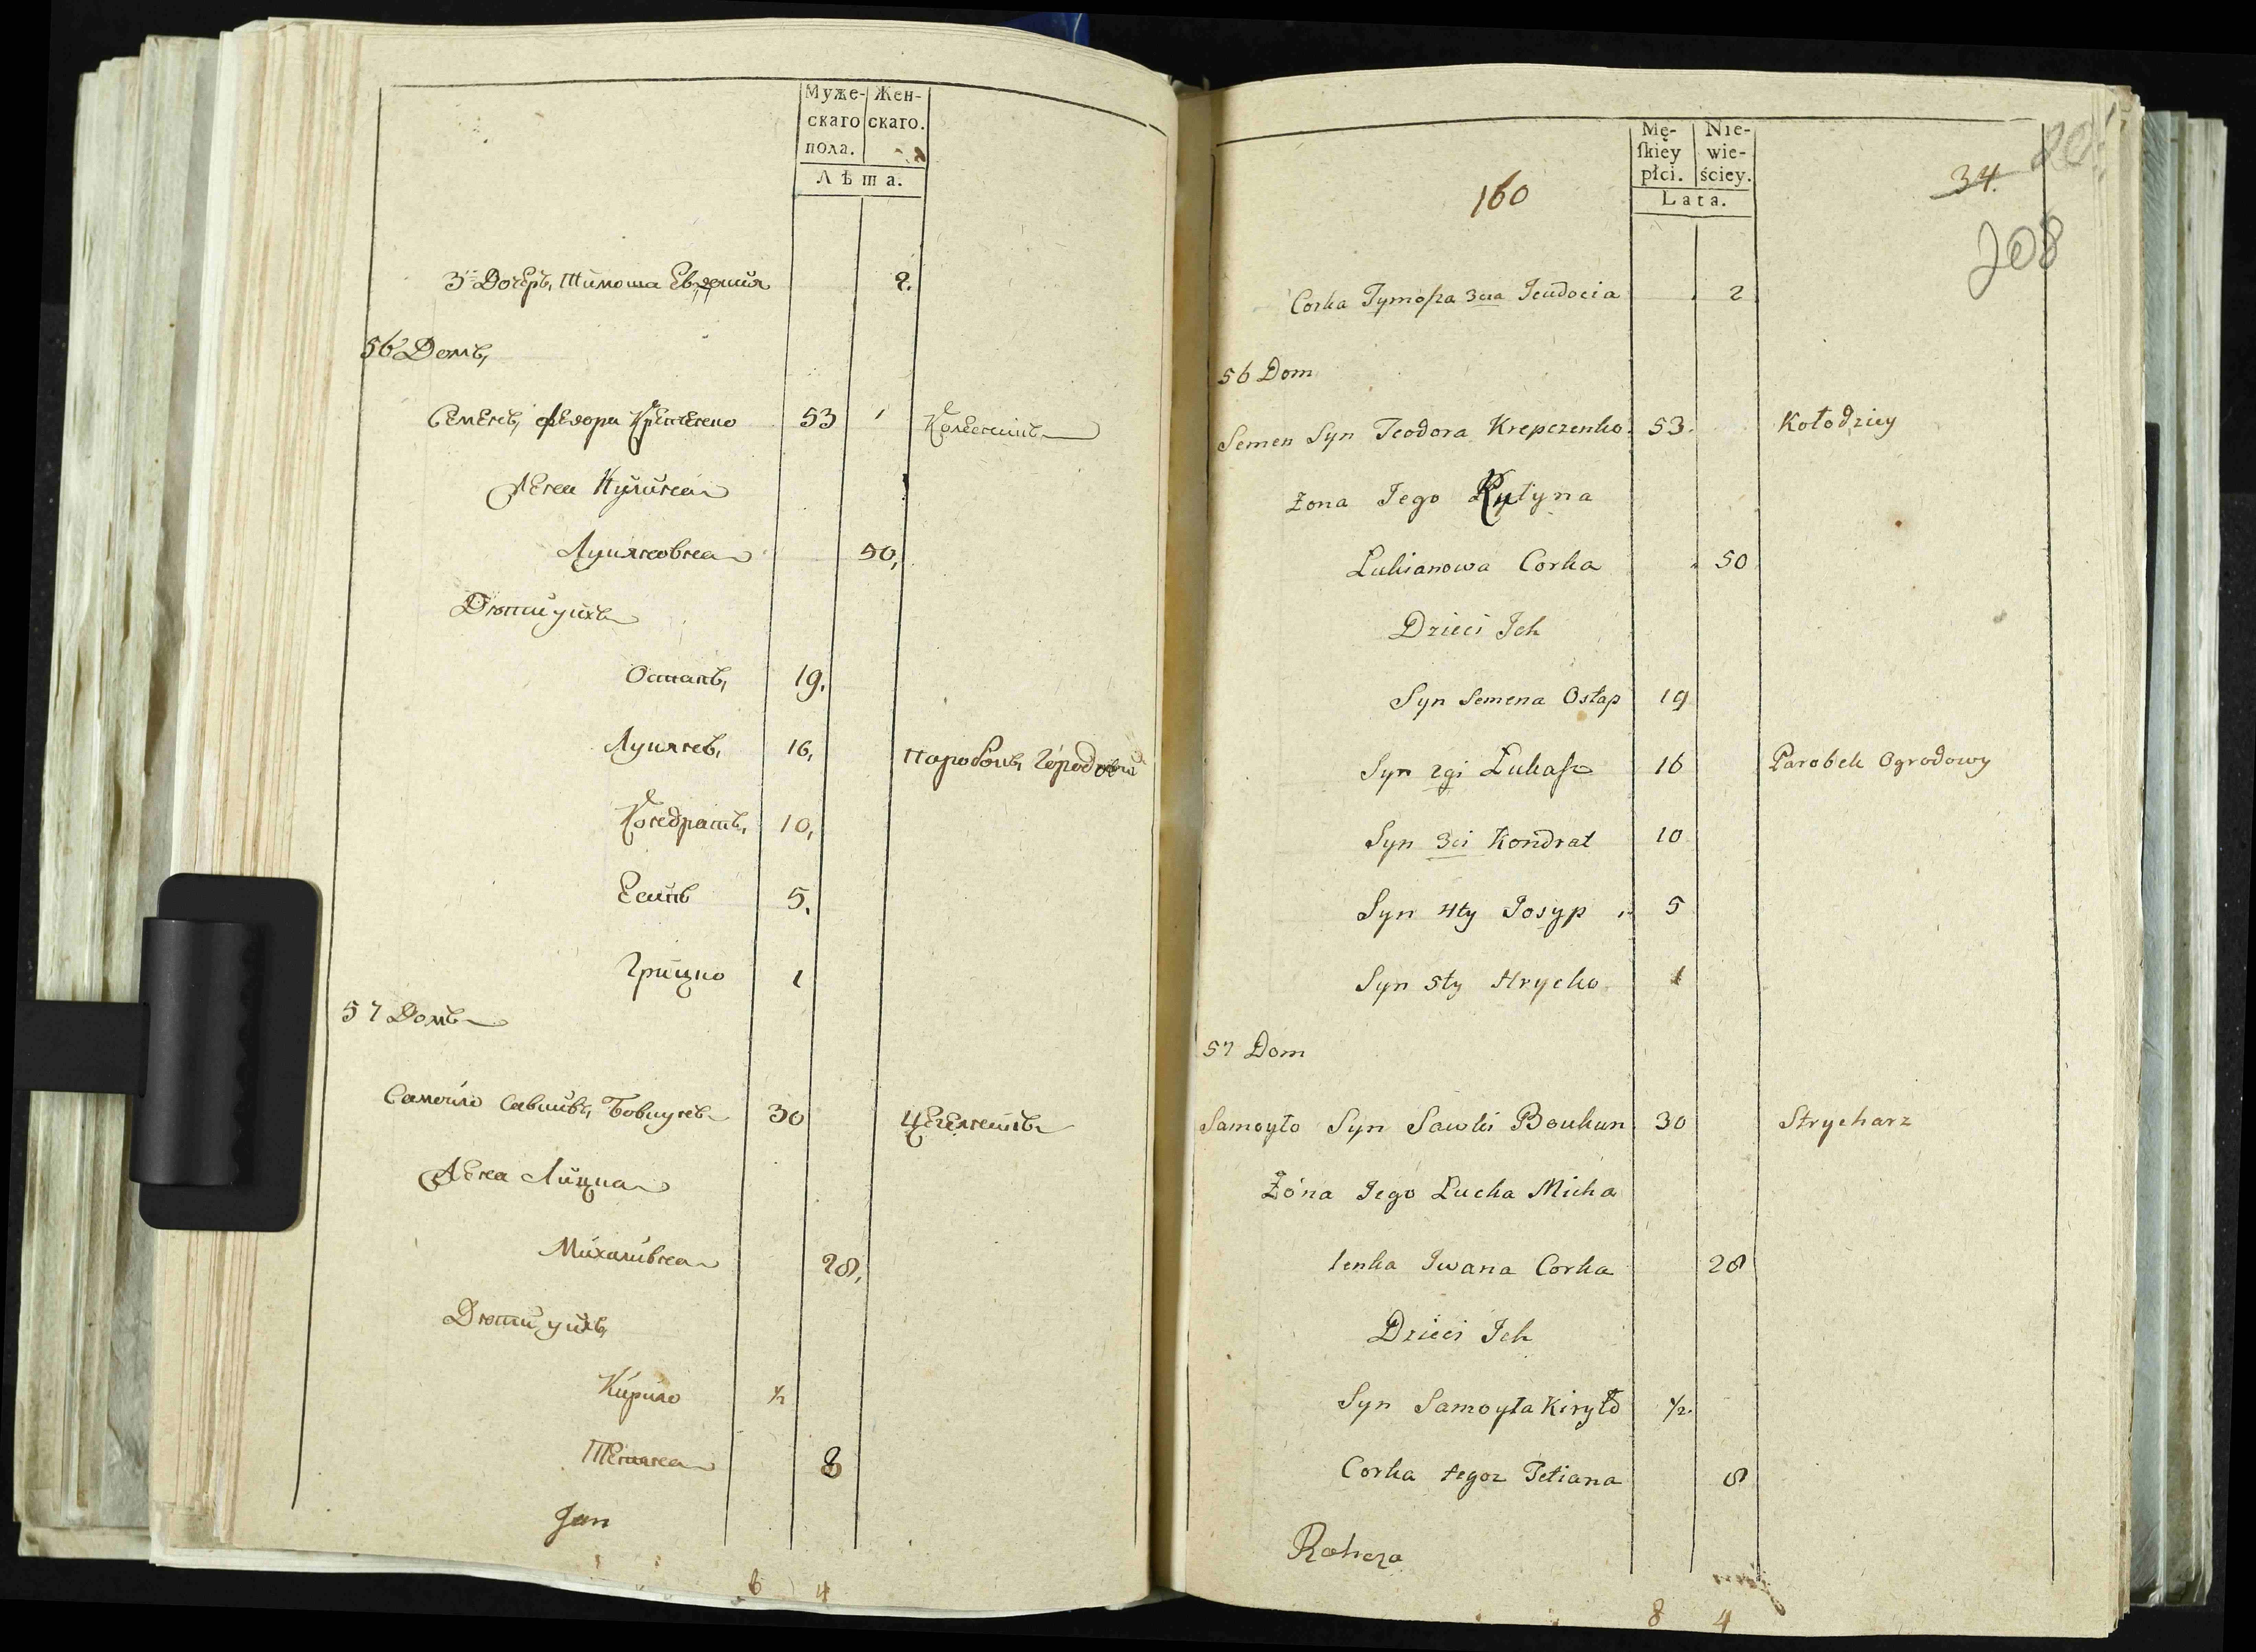 Муже- Жен-
скаго скаго.
пола.
Лѣта.
3. Дочерь Тимоша Евдокия 2.
56 Домъ,
Семенъ, Федора Крепченко 53 Колесникъ
Жена
Лукяновна 50,
Дюти ихъ
Остапъ, 19.
Лукянъ, 16, Паробокъ, Городовый
Кондратъ, 10,
Есипъ 5.
Грицко 1
57 Домъ
Самойло Савкивъ, Бовкунъ 30 Цегелникъ
Жена
Михаливна 28,
Дюти ихъ,
Кирило 1/2
Тетяна 8
Jan
6 4
Mę- Nie-
ſkiey wie-
płci. ściey.
Lata.
160
34.
208
Corka Tymoſza 3cia Jeudocia 2
56 Dom
Semen Syn Teodora Krepczenko. 53. Kołodziey
Żona Jego
Lukianowa Corka 50
Dzieci Ich
Syn Semena Ostap 19
Syn 2gi Lukaſz 16 Parobek Ogrodowy
Syn 3ci Kondrat 10
Syn 4ty Josyp 5
Syn 5ty Hrycko 1
57 Dom
Samoyło Syn Sawki Boukun 30 Strycharz
Żona Jego Lucka Micha
lenka Iwana Corka 28
Dzieci Ich
Syn Samoyła Kiryło 1/2.
Corka tegoz Tetiana 8
Rohoza
8 4